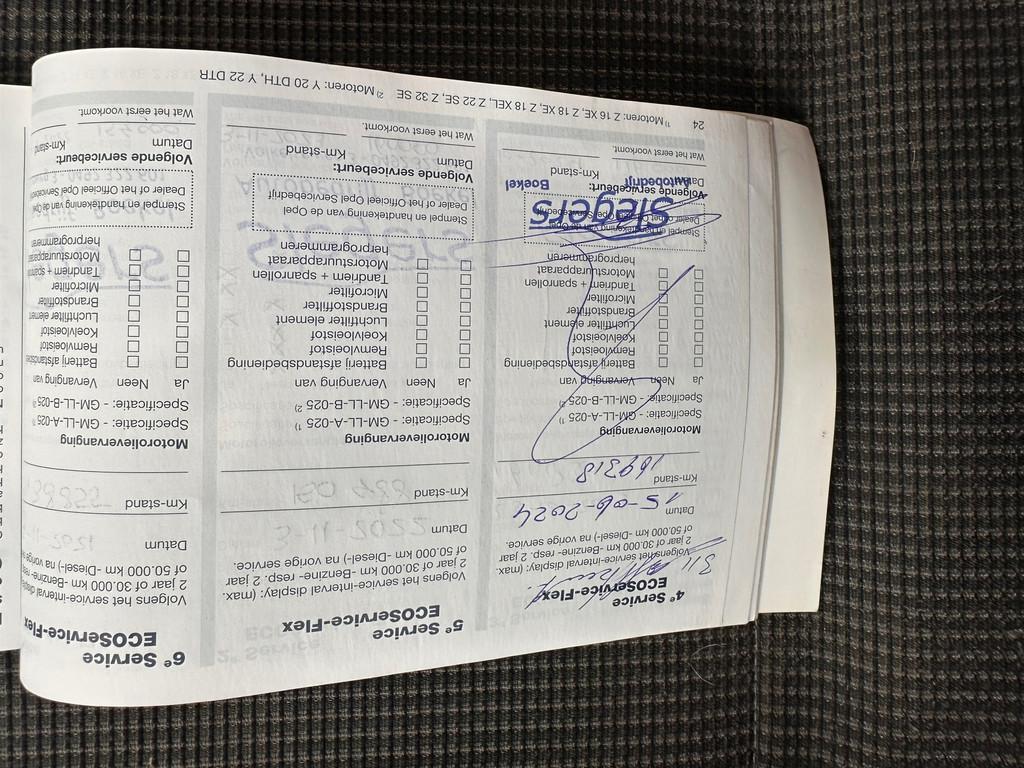 4e Service
ECOService-Flex
Volgens het service-interval display: (max.
2 jaar of 30.000 km -Benzine- resp. 2 jaar
of 50.000 km -Diesel-) na vorige service.
Datum
15-06-2024
Km-stand
169318
Motorolievervanging
Specificatie: - GM-LL-A-025 1)
Specificatie: - GM-LL-B-025 2)
Ja Neen Vervanging van
Batterij afstandsbediening
Remvloeistof
Koelvloeistof
Luchtfilter element
Brandstoffilter
Microfilter
Tandriem + spanrollen
Motorstuurapparaat
herprogrammeren
Stempel en handtekening van de Opel
Dealer of het Officieel Opel Servicebedrijf
Siegers
Autobedrijf Boekel
Volgende servicebeurt:
Datum Km-stand
Wat het eerst voorkomt.
24 1) Motoren: Z 16 XE, Z 18 XE, Z 18 XEL, Z 22 SE, Z 32 SE 2) Motoren: Y 20 DTH, Y 22 DTR
5e Service
ECOService-Flex
Volgens het service-interval display: (max.
2 jaar of 30.000 km -Benzine- resp. 2 jaar
of 50.000 km -Diesel-) na vorige service.
Datum
3-11-2022
Km-stand
Motorolievervanging
Specificatie: - GM-LL-A-025 1)
Specificatie: - GM-LL-B-025 2)
Ja Neen Vervanging van
Batterij afstandsbediening
Remvloeistof
Koelvloeistof
Luchtfilter element
Brandstoffilter
Microfilter
Tandriem + spanrollen
Motorstuurapparaat
herprogrammeren
Stempel en handtekening van de Opel
Dealer of het Officieel Opel Servicebedrijf
Volgende servicebeurt:
Datum Km-stand
Wat het eerst voorkomt.
6e Service
ECOService-Flex
Volgens het service-interval display
2 jaar of 30.000 km -Benzine-
of 50.000 km -Diesel-) na vorige
Datum
Km-stand
Motorolievervanging
Specificatie: - GM-LL-A-025
Specificatie: - GM-LL-B-025
Ja Neen Vervanging van
Batterij afstandsbe
Remvloeistof
Koelvloeistof
Luchtfilter element
Brandstoffilter
Microfilter
Tandriem + spanro
Motorstuurapparaat
herprogrammeren
Stempel en handtekening van de Ope
Dealer of het Officieel Opel Servicebed
Volgende servicebeurt:
Datum Km-stand
Wat het eerst voorkomt.